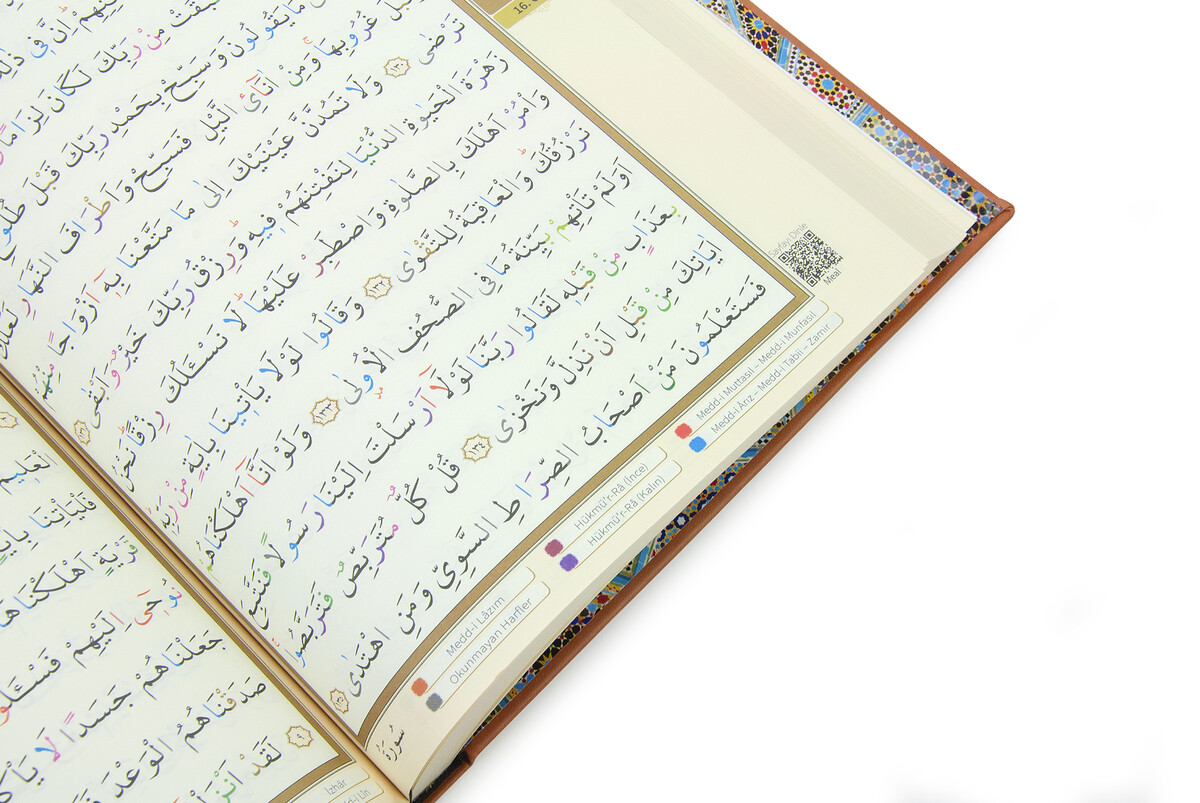 16.
اِنَّ فِي
سَبَقَتْ مِنْ رَبِّكَ لَكَانَ لِزَامًا
مَا يَقُولُونَ وَسَبِّحْ بِحَمْدِ رَبِّكَ قَبْلَ طُلُوعِ
غُرُوبِهَا وَمِنْ اٰنَآئِ الَّيْلِ فَسَبِّحْ وَاَطْرَافَ النَّهَارِ
تَرْضٰى ١٣٠ وَلَا تَمُدَّنَّ عَيْنَيْكَ اِلٰى مَا مَتَّعْنَا بِهٖٓ اَزْوَاجًا مِنْهُمْ
زَهْرَةَ الْحَيٰوةِ الدُّنْيَا لِنَفْتِنَهُمْ فٖيهِ وَرِزْقُ رَبِّكَ خَيْرٌ وَاَبْقٰى ١٣١
وَاْمُرْ اَهْلَكَ بِالصَّلٰوةِ وَاصْطَبِرْ عَلَيْهَا لَا نَسْـَٔلُكَ رِزْقًا نَحْنُ
نَرْزُقُكَ وَالْعَاقِبَةُ لِلتَّقْوٰى ١٣٢ وَقَالُوا لَوْلَا يَاْتٖينَا بِاٰيَةٍ مِنْ رَبِّهٖ
اَوَلَمْ تَاْتِهِمْ بَيِّنَةُ مَا فِي الصُّحُفِ الْاُولٰى ١٣٣ وَلَوْ اَنَّٓا اَهْلَكْنَاهُمْ
بِعَذَابٍ مِنْ قَبْلِهٖ لَقَالُوا رَبَّنَا لَوْلَٓا اَرْسَلْتَ اِلَيْنَا رَسُولًا فَنَتَّبِعَ
اٰيَاتِكَ مِنْ قَبْلِ اَنْ نَذِلَّ وَنَخْزٰى ١٣٤ قُلْ كُلٌّ مُتَرَبِّصٌ فَتَرَبَّصُوا
فَسَتَعْلَمُونَ مَنْ اَصْحَابُ الصِّرَاطِ السَّوِيِّ وَمَنِ اهْتَدٰى ١٣٥
Sayfayı Dinle
Meal
Medd-i Muttasıl – Medd-i Munfasıl
Medd-i Arız – Medd-i Tabii – Zamir
Hükmü'r-Râ (İnce)
Hükmü'r-Râ (Kalın)
Medd-i Lâzım
Okunmayan Harfler
سُورَةُ
فَلْيَاْتِنَا بِاٰيَةٍ
قَرْيَةٍ اَهْلَكْنَاهَا
نُوحٖٓي اِلَيْهِمْ فَسْـَٔلُوا
جَعَلْنَاهُمْ جَسَدًا لَا
صَدَقْنَاهُمُ الْوَعْدَ
٩ لَقَدْ
İzhâr